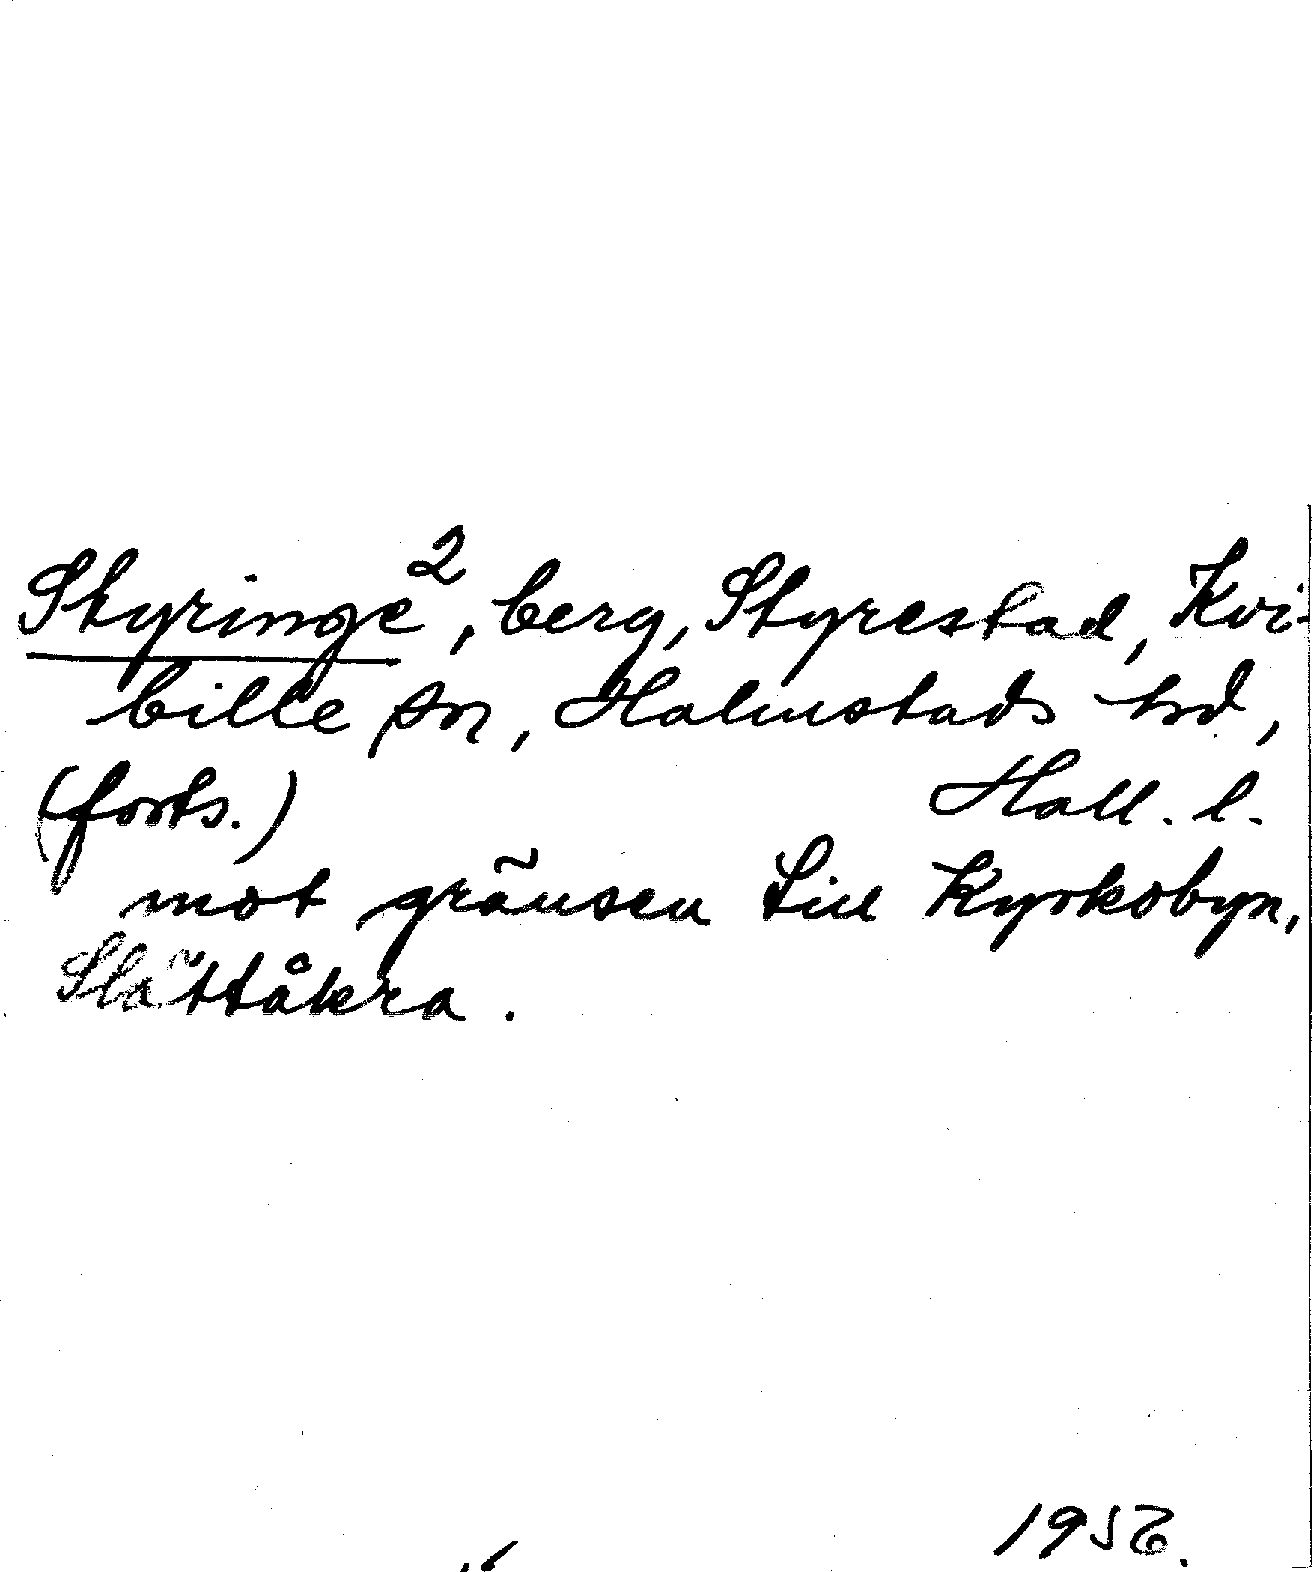 Styringe², berg, Styrestad, Kvi-
bille sn, Halmstads hd,
(forts.) Hall. l.
mot gränsen till Kyrkobyn,
Slättåkra.
1956.